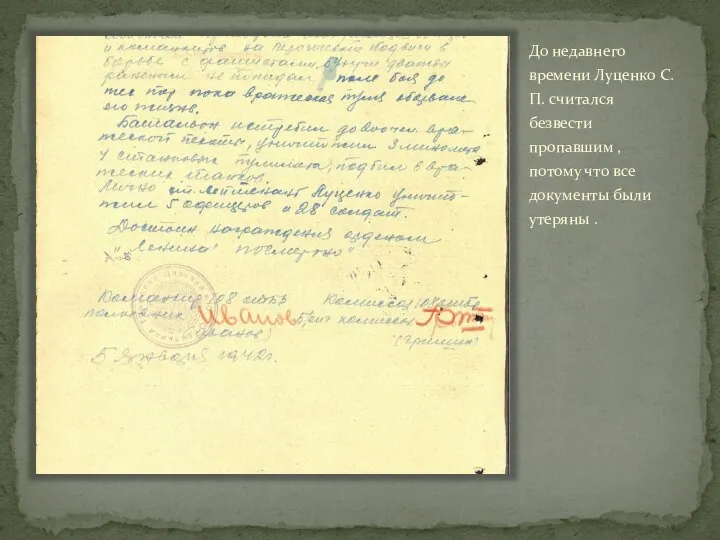 и командиров на героические подвиги в
борьбе с фашистами, будучи дважды
раненым не покидал поле боя до
тех пор пока вражеская пуля
его жизнь.
Батальон истребил до вра-
жеской пехоты, уничтожил 3 миномета
4 станковых пулемета, подбил 8 вра-
жеских танков.
Лично лейтенант Луценко уничто-
жил 5 офицеров и 28 солдат.
Достоин награждения орденом
„Ленина" посмертно"
Командир 108 Комиссар 108
полковник Иванов комиссар
(Иванов) (Гришин)
5 января 1942г.
До недавнего
времени Луценко С.
П. считался
безвести
пропавшим ,
потому что все
документы были
утеряны .